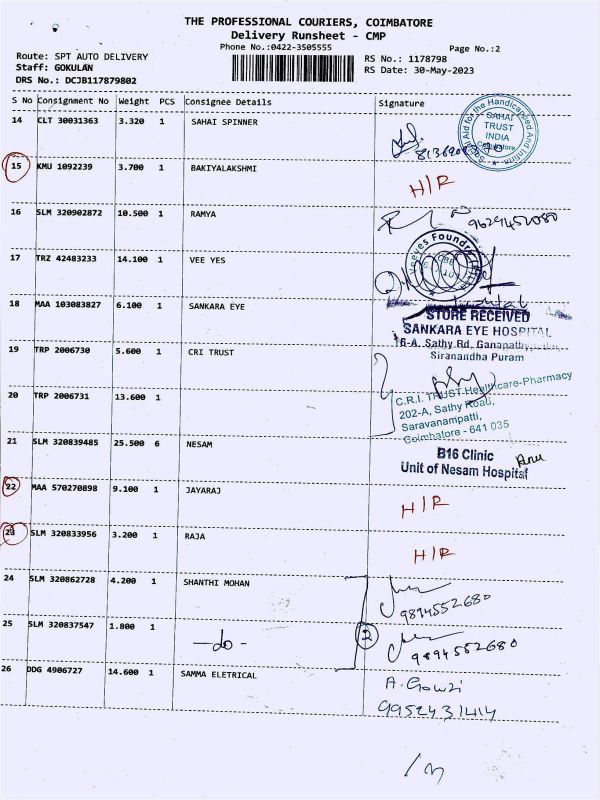 THE PROFESSIONAL COURIERS, COIMBATORE
Delivery Runsheet - CMP
Phone No.:0422-3505555
Page No.:2
Route: SPT AUTO DELIVERY
RS No.: 1178798
Staff: GOKULAN
RS Date: 30-May-2023
DRS No.: DCJB117879802
S No Consignment No Weight PCS Consignee Details Signature
14 CLT 30031363 3.320 1 SAHAI SPINNER
SAHAI TRUST INDIA Coimbatore
Social Aid for the Handicapped And Infirm
15 KMU 1092239 3.700 1 BAKIYALAKSHMI H/R
16 SLM 320902872 10.500 1 RAMYA 9629452080
17 TRZ 42483233 14.100 1 VEE YES
18 MAA 103083827 6.100 1 SANKARA EYE
STORE RECEIVED
SANKARA EYE HOSPITAL
16-A, Sathy Rd, Ganapathy
Siranandha Puram
19 TRP 2006730 5.600 1 CRI TRUST
20 TRP 2006731 13.600 1
C.R.I. TRUST Healthcare-Pharmacy
202-A, Sathy Road,
Saravanampatti,
Coimbatore - 641 035
21 SLM 320839485 25.500 6 NESAM
B16 Clinic
Unit of Nesam Hospital
22 MAA 570270898 9.100 1 JAYARAJ H/R
23 SLM 320833956 3.200 1 RAJA H/R
24 SLM 320862728 4.200 1 SHANTHI MOHAN
9894552680
25 SLM 320837547 1.800 1 —do- 2
9894552680
26 DDG 4906727 14.600 1 SAMMA ELETRICAL
A. Gowri
9952431414